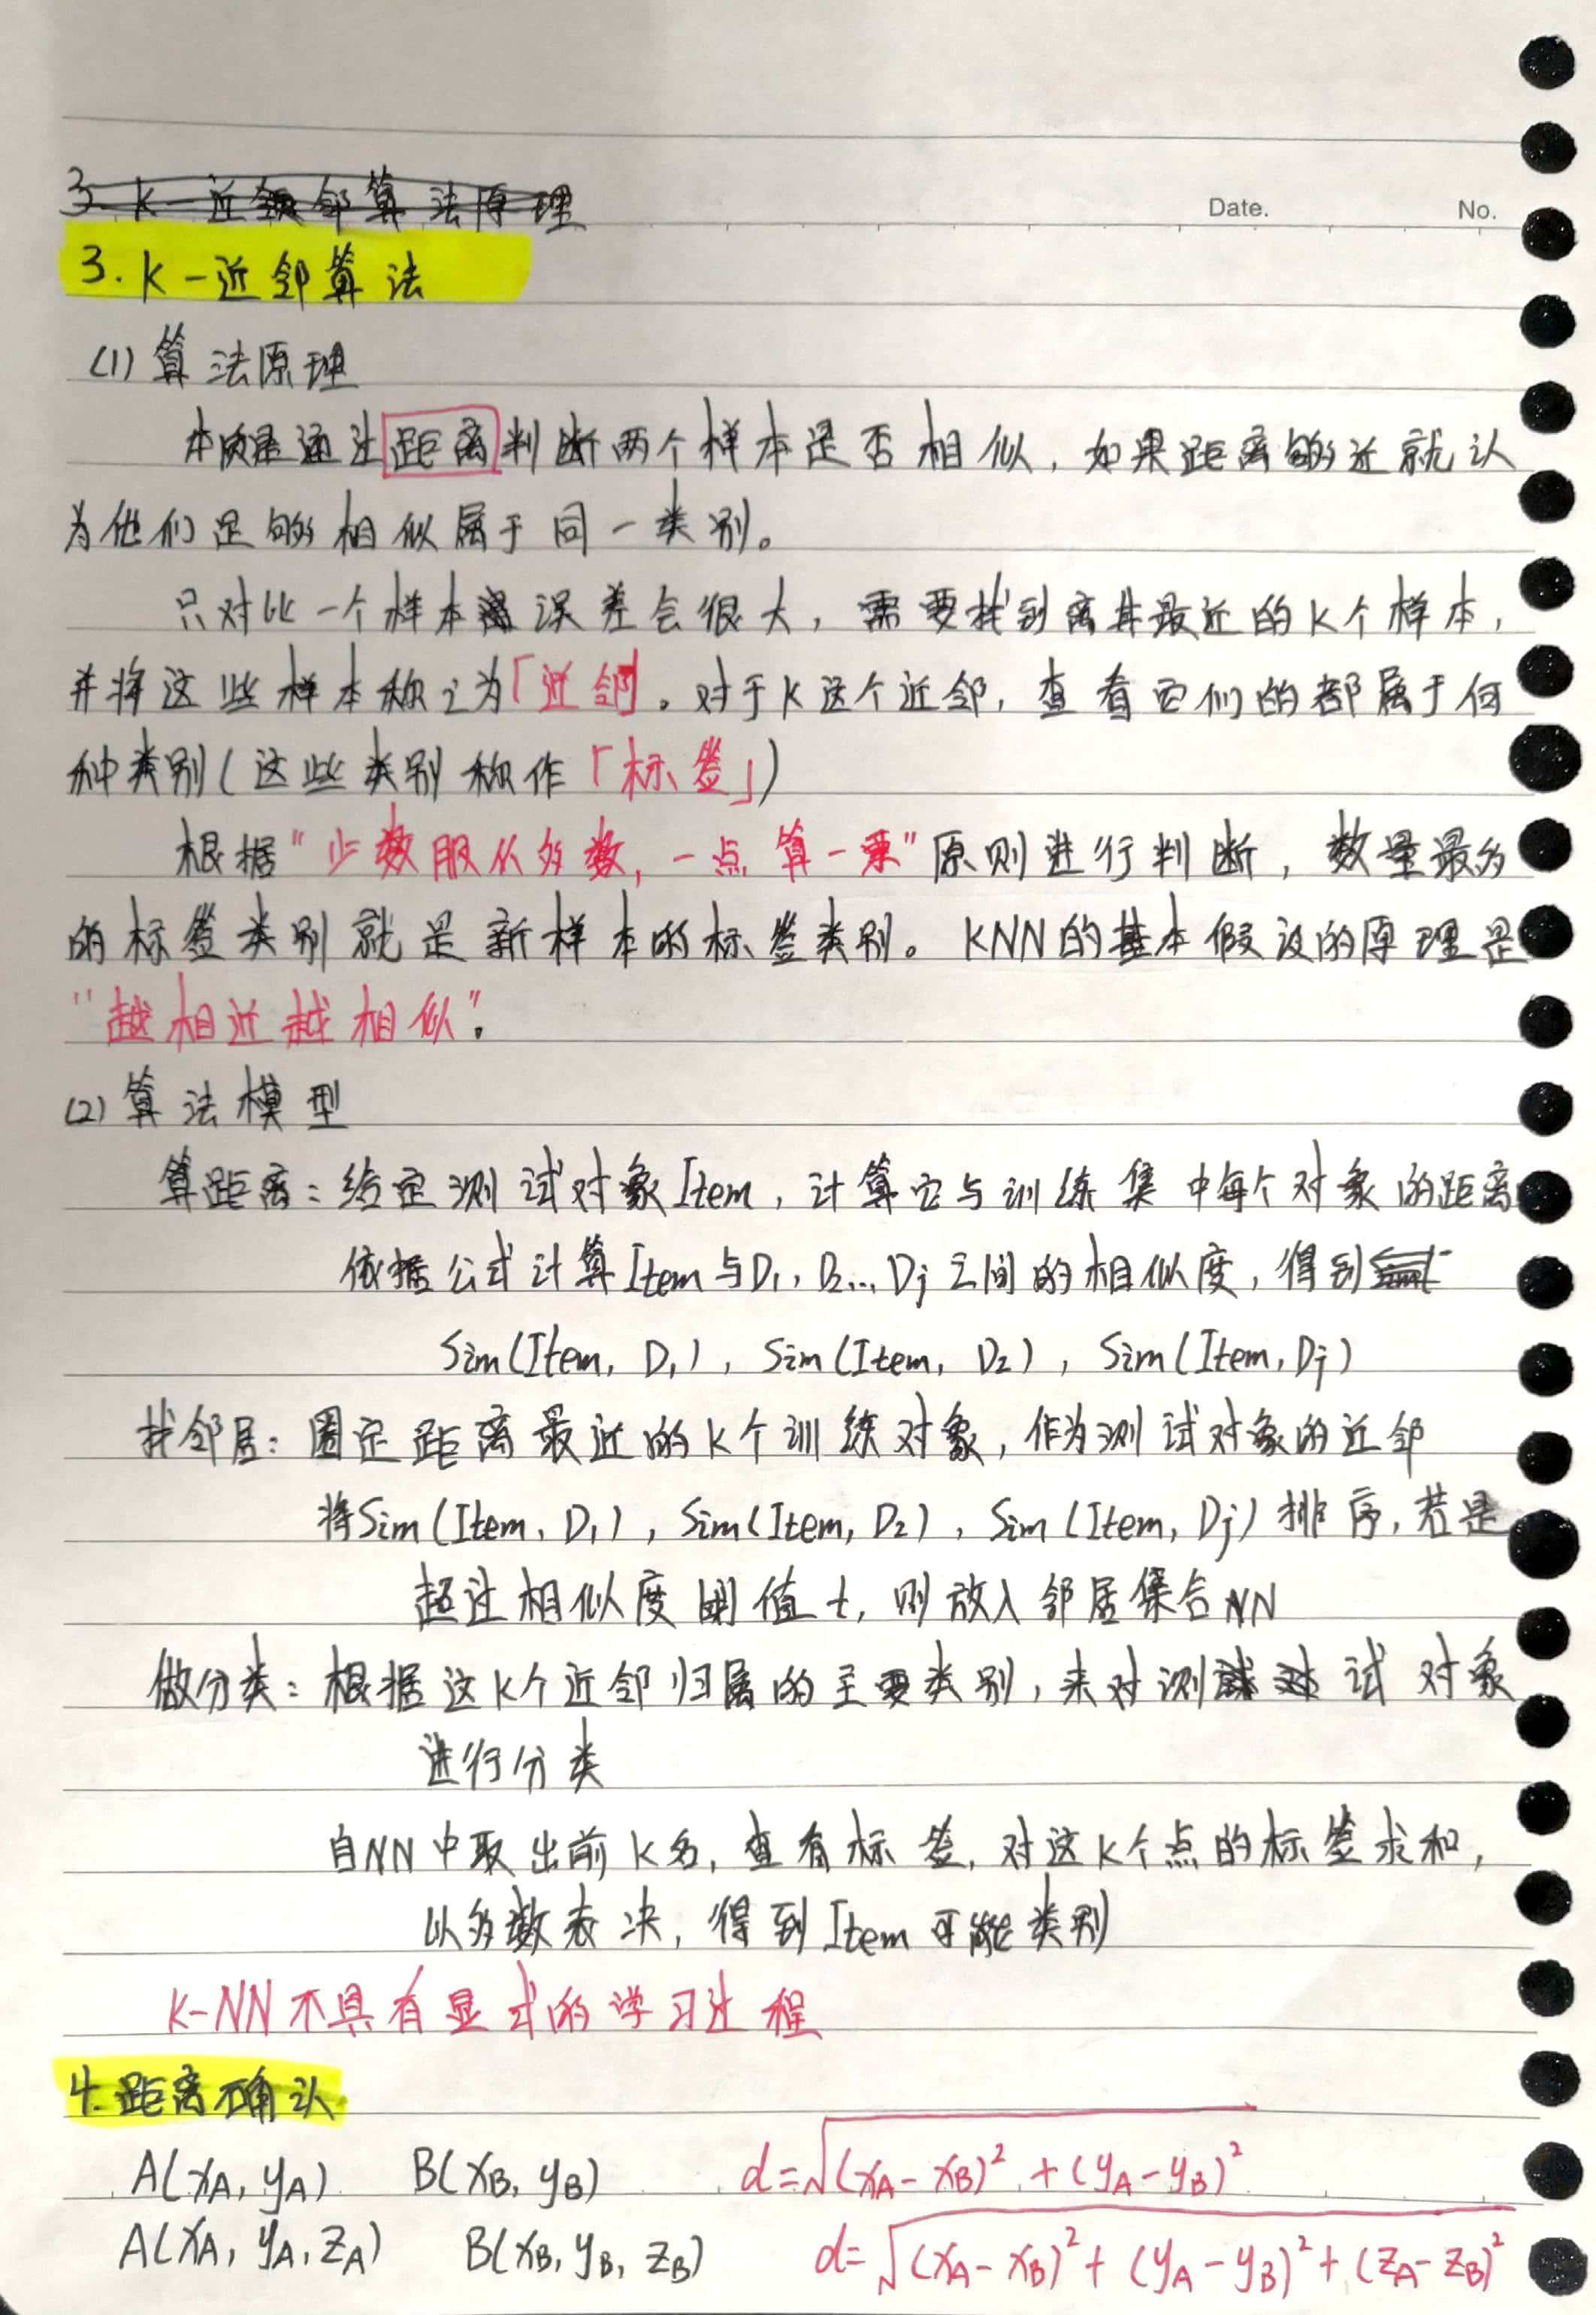 3. K-近邻算法原理
Date. No.
3. K-近邻算法
(1) 算法原理
本质是通过距离判断两个样本是否相似，如果距离够近就认
为他们足够相似属于同一类别。
只对比一个样本误差会很大，需要找到离其最近的K个样本，
并将这些样本称之为「近邻」。对于K这个近邻，查看它们的都属于何
种类别(这些类别称作「标签」)
根据“少数服从多数，一点算一票”原则进行判断，数量最多
的标签类别就是新样本的标签类别。KNN的基本假设的原理是
“越相近越相似”。
(2) 算法模型
算距离：给定测试对象Item，计算它与训练集中每个对象的距离
依据公式计算Item与D₁，D₂...Dj之间的相似度，得到
Sim(Item, D₁)，Sim(Item, D₂)，Sim(Item, Dj)
找邻居：圈定距离最近的K个训练对象，作为测试对象的近邻
将Sim(Item, D₁)，Sim(Item, D₂)，Sim(Item, Dj)排序，若是
超过相似度阈值t，则放入邻居集合NN
做分类：根据这K个近邻归属的主要类别，来对测试对象
进行分类
自NN中取出前K名，查看标签，对这K个点的标签求和，
以多数表决，得到Item可能类别
K-NN不具有显式的学习过程
4. 距离确认
A(xA, yA) B(xB, yB) d=√(xA-xB)²+(yA-yB)²
A(xA, yA, zA) B(xB, yB, zB) d=√(xA-xB)²+(yA-yB)²+(zA-zB)²